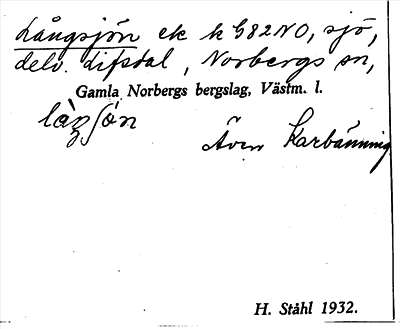 Långsjön ek k G82NO, sjö,
delv. Lifsdal, Norbergs sn,
Gamla Norbergs bergslag, Västm. l.
Även Karbänning
H. Ståhl 1932.